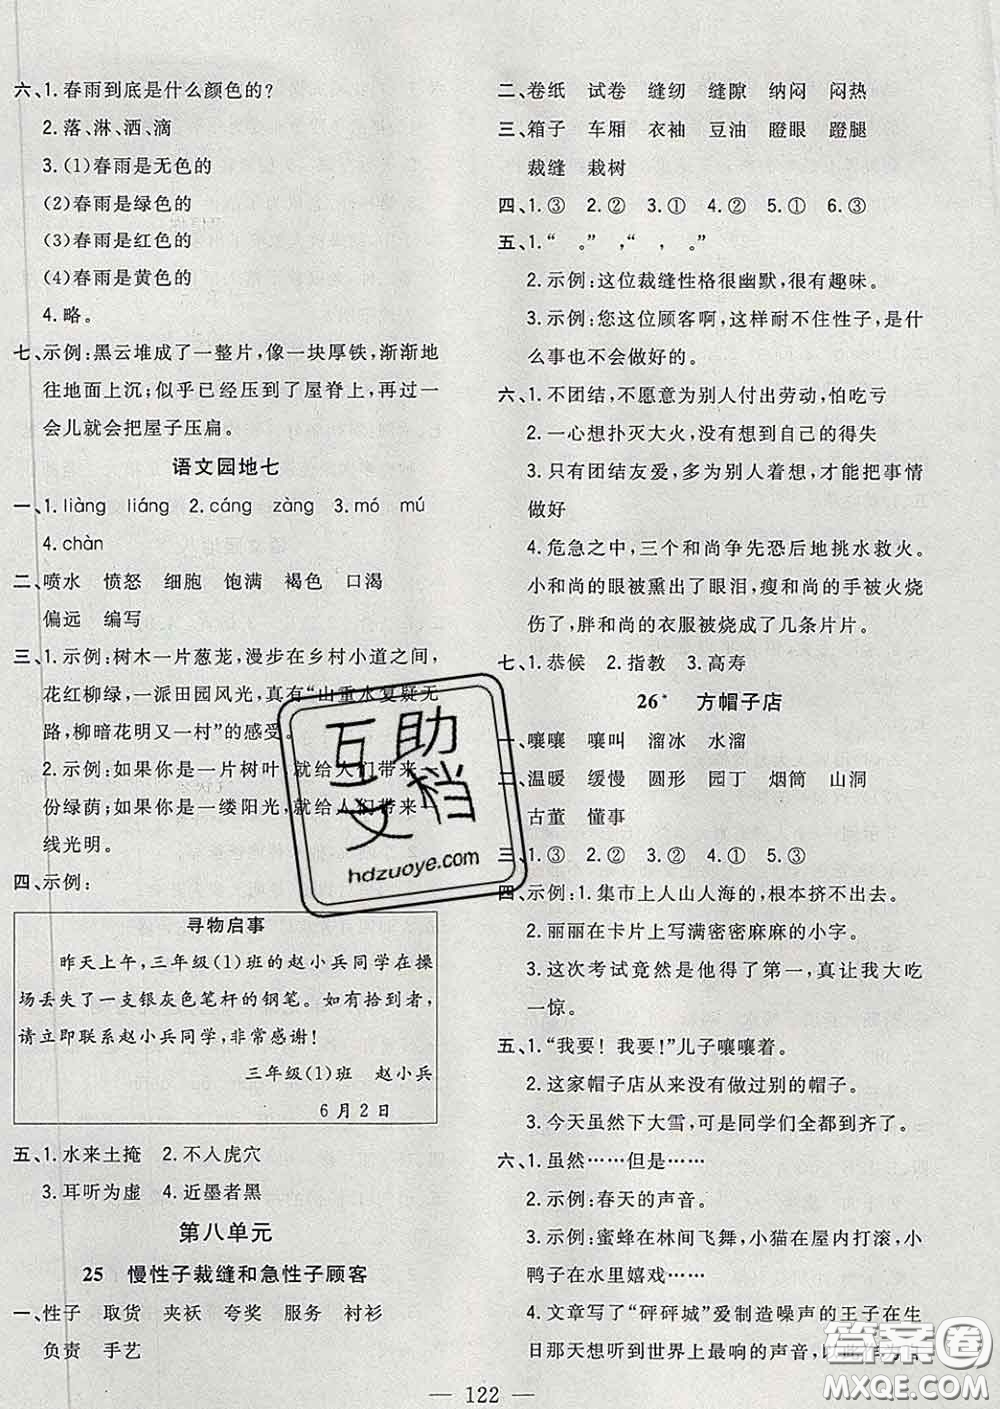 六、1.春雨到底是什么颜色的?
2.落、淋、洒、滴
3.(1)春雨是无色的
(2)春雨是绿色的
(3)春雨是红色的
(4)春雨是黄色的
4.略。
七、示例:黑云堆成了一整片,像一块厚铁,渐渐地
往地面上沉;似乎已经压到了屋脊上,再过一
会儿就会把屋子压扁。
语文园地七
一、1.liàng liáng 2.cáng zàng 3.mó mú
4.chàn
二、喷水 愤怒 细胞 饱满 褐色 口渴
偏远 编写
三、1.示例:树木一片葱茏,漫步在乡村小道之间,
花红柳绿,一派田园风光,真有“山重水复疑无
路,柳暗花明又一村”的感受。
2.示例:如果你是一片树叶,就给人们带来一
份绿荫;如果你是一缕阳光,就给人们带来一
线光明。
四、示例:
寻物启事
昨天上午,三年级(1)班的赵小兵同学在操
场丢失了一支银灰色笔杆的钢笔。如有拾到者,
请立即联系赵小兵同学,非常感谢!
三年级(1)班 赵小兵
6月2日
五、1.水来土掩 2.不入虎穴
3.耳听为虚 4.近墨者黑
第八单元
25 慢性子裁缝和急性子顾客
一、性子 取货 夹袄 夸奖 服务 衬衫
负责 手艺
二、卷纸 试卷 缝纫 缝隙 纳闷 闷热
三、箱子 车厢 衣袖 豆油 瞪眼 蹬腿
裁缝 栽树
四、1.③ 2.② 3.① 4.② 5.① 6.③
五、1.“ 。” ,“ , 。”
2.示例:这位裁缝性格很幽默,很有趣味。
3.示例:您这位顾客啊,这样耐不住性子,是什
么事也不会做好的。
六、1.不团结,不愿意为别人付出劳动,怕吃亏
2.一心想扑灭大火,没有想到自己的得失
3.只有团结友爱,多为别人着想,才能把事情
做好
4.危急之中,三个和尚争先恐后地挑水救火。
小和尚的眼被熏出了眼泪,瘦和尚的手被火烧
伤了,胖和尚的衣服被烧成了几条片片。
七、1.恭候 2.指教 3.高寿
26* 方帽子店
一、嚷嚷 嚷叫 溜冰 水溜
二、温暖 缓慢 圆形 园丁 烟筒 山洞
古董 懂事
三、1.③ 2.② 3.① 4.② 5.③
四、示例:1.集市上人山人海的,根本挤不出去。
2.丽丽在卡片上写满密密麻麻的小字。
3.这次考试竟然是他得了第一,真让我大吃
一惊。
五、1.“我要! 我要!”儿子嚷嚷着。
2.这家帽子店从来没有做过别的帽子。
3.今天虽然下大雪,可是同学们全都到齐了。
六、1.虽然……但是……
2.示例:春天的声音。
3.示例:蜜蜂在林间飞舞,小猫在屋内打滚,小
鸭子在水里嬉戏……
4.文章写了“砰砰城”爱制造噪声的王子在生
日那天想听到世界上最响的声音,以
— 122 —
互助
文档
hdzuoye.com
答案圈
MXQE.COM